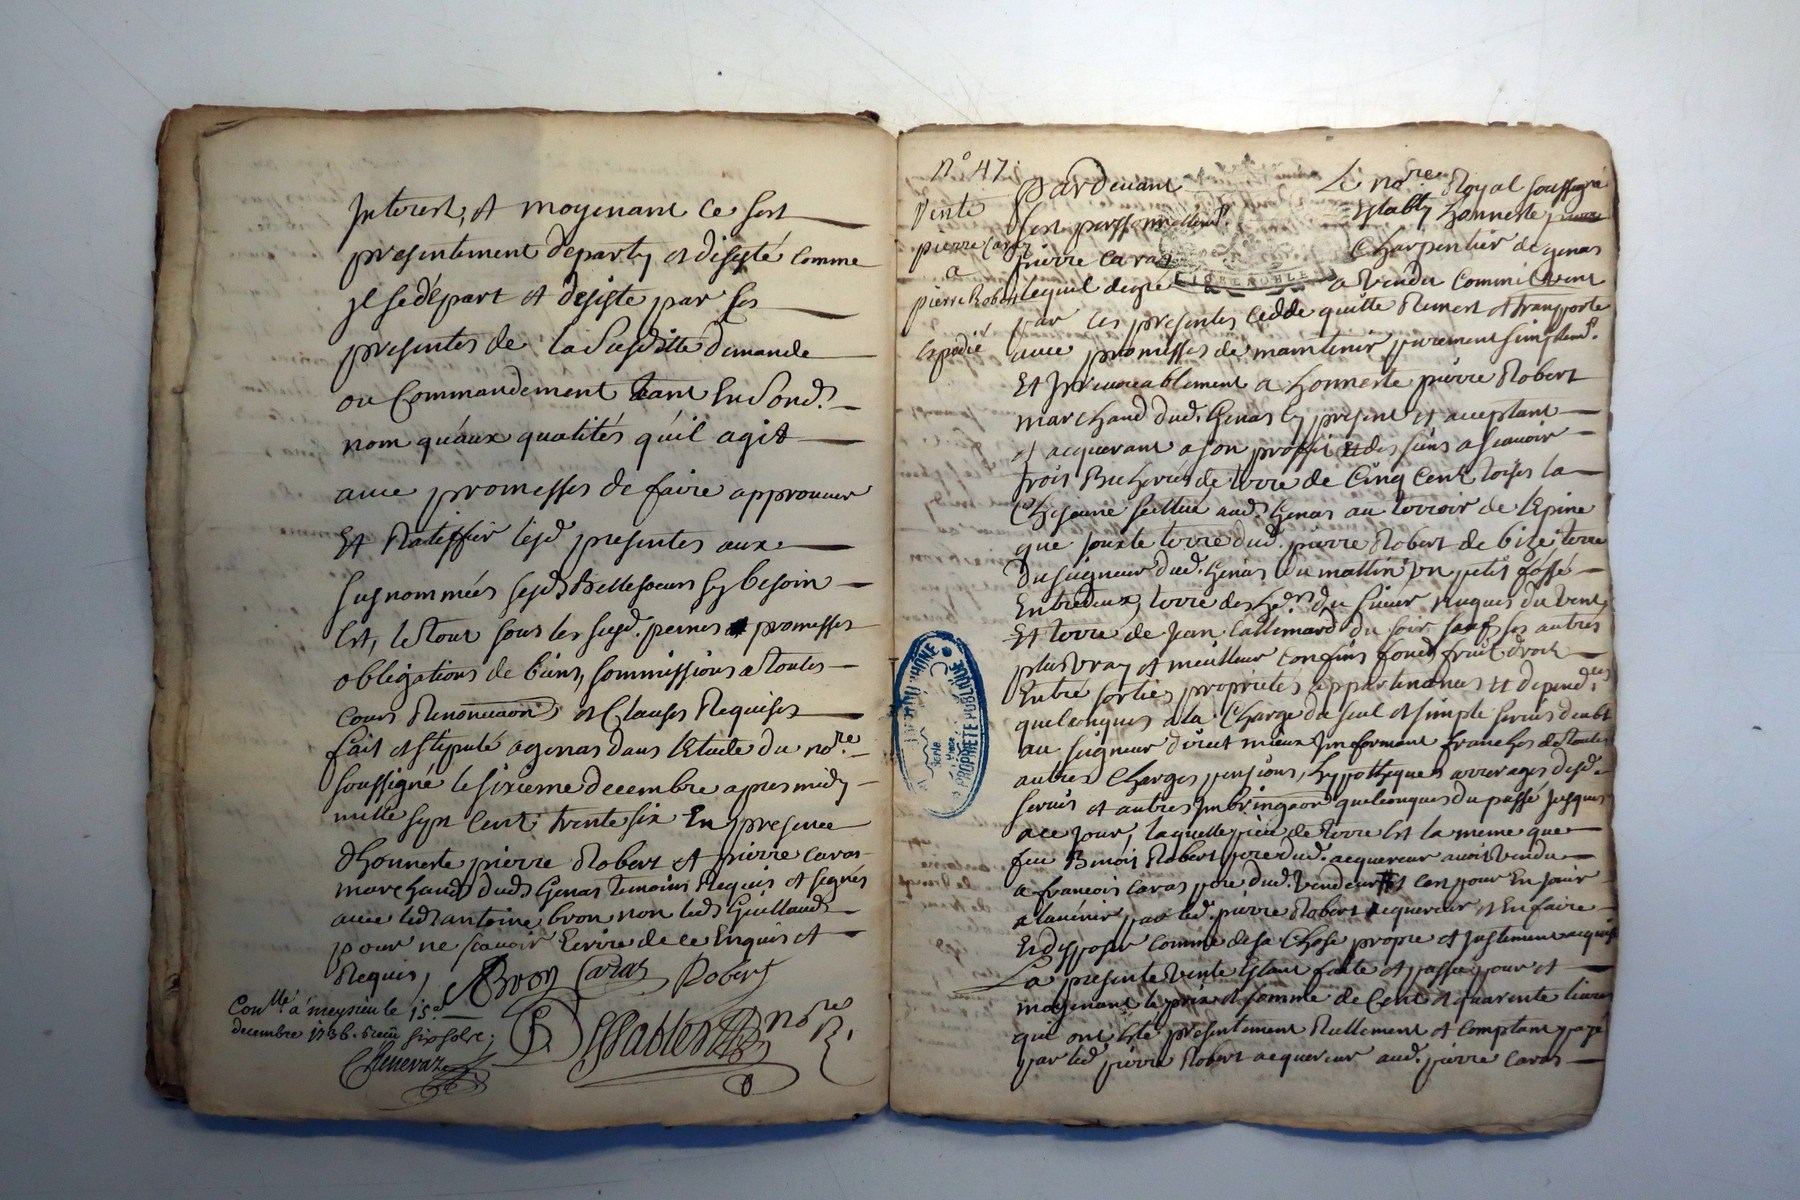 Interest, et moyenant ce sest
presentement departy et desisté comme
jl se départ et desiste par ses
presentes de la Susditte demande
ou Commandement tant En Sond.
nom qu'aux qualités qu'il agist
avec promesses de faire approuver
Et Ratiffier lesd presentes aux
susnommées sesd Bellesoeurs sy besoin
Est, le tout sous les susd. peines et promesses
obligations de biens, sommissions a toutes
cours Renonciaon et Clauses Requises
fait et stipulé a genas dans l'Etude du nore
soussigné le sixieme decembre apres midy
mille sept Cent trente six En presence
d'honneste pierre Robert et pierre caras
marchands dud Genas temoins Requis et signés
avec led antoine bron non led Guillaud
pour ne scavoir Ecrire de ce Enquis et
Requis,
ABron Caras Robert
Conllé à meysieu le 15e
decembre 1736. Receu six sols;
nore
Chenevaz
No 47
Vente
pierre Caraz
a
pierre Robert
Expedié
Pardevant Le nore Royal soussigné
s'est personnellemt Estably honneste pierre
pierre caras Charpentier de genas
GRENOBLE
Lequel de gre a Vendu Comme il Vent
par ces presentes cedde quitte Remet et transporte
avec promesses de maintenir purement simplemt
Et Irrevocablement a honneste pierre Robert
marchand dud. Genas Cy present et acceptant
et acquerant a son proffit Et des siens a scavoir
trois Bicherées de terre de Cinq Cent toises la
Chacune scittue aud. Genas au terroir de l'Epine
que jouxte terre dud. pierre Robert de bize terre
du seigneur dud. Genas du mattin un petit fossé
Entredeux, terre des hers du sieur du Vent
Et terre de Jean Lallemand du soir sauf ses autres
plus vray et meilleur confins fonds fruit droit
Entré sorties proprietés appartenances et dependces
quelconques a la Charge du seul et simple servis deubt
au seigneur direct mieux Informant franches de toutes
autres Charges pensions, hypotheques arrerages desd.
servis et autres quelconques du passé Jusques
a ce jour, laquelle piece de terre Est la meme que
feu Benoit Robert pere dud. acquereur avoit vendu
a francois caras pere dud. Vendeur et c'est pour En jouir
a l'avenir par led. pierre Robert acquereur et En faire
En disposer comme de sa Chose propre et Justement acquise
La presente Vente Etant faite et passée pour et
moyenant le prix et somme de Cent et quarente livres
qui ont Eté presentement Reellement et Comptant payé
par led pierre Robert acquereur aud. pierre caras
PROPRIÉTÉ PUBLIQUE